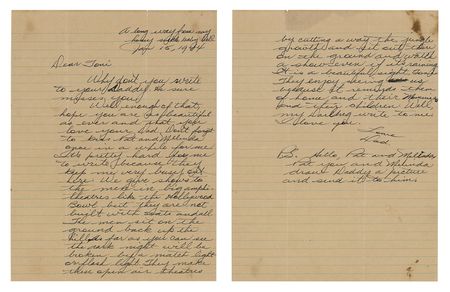 A long way from my
honey
Jan 15, 1944
Dear Toni
Why don't you write
to your Daddy. He sure
misses you.
Well enough of that,
hope you are as beautiful
as ever and that you
love your Dad. Don't forget
to Pat and Melinda
once in a while for me.
It's pretty hard for me
to write, because they
keep me very busy out
here. We give shows to
the men in big amphi-
theatres like the Hollywood
Bowl but they are not
built with seats and all.
The men sit on the
ground back up the
hill as far as you can see
the dark night will be
broken by a match light
or flash light. They make
these open air theatres
by cutting away the jungle
growth and sit out there
on the ground and watch
a show even if its raining
It is a beautiful sight. Some
They enjoy seeing us
because it reminds them
of home and their
and their children. Well,
my darling write to me
I love you.
Love
Dad.
P.S. Hello Pat and Melinda
Pat you and Melinda
draw Daddy a picture
and send it to him.